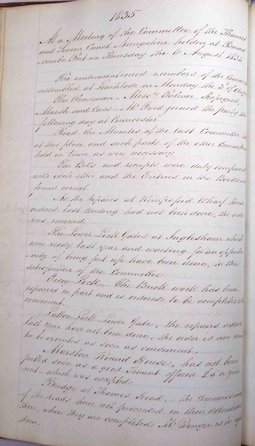 1835
At a Meeting of the Committee of the Thames
and Severn Canal Navigation holden at Brims-
combe Port on Thursday the 6 August 1835
The undermentioned members of the Committee
assembled at Lechlade on Monday the 3d of August
The Chairman - Messrs
and Mr Ford joined the party the
following day at Cirencester
Read the Minutes of the last Committee
at this place and such parts of the other Committees
held in Town as were necessary
The Bills and receipts were duly compared
with each other and the Entries in the Cashbook
found correct
As the repairs at Kempsford Wharf House
ordered last Meeting had not been done, the order
was renewed.
The Lower Lock Gates at Inglesham which
were ready last year and waiting for an opportu-
nity of being put up have been done, to the
satisfaction of the Committee
Eisey Lock - The Brick work has been
repaired in part and is ordered to be completed
convenient.
Latton Lock Lower Gate, the repairs ordered
last year have not been done, the order is now renewed
to be executed as soon as convenient.
Marston Round House, has not been
pulled down as a good Tenant offered
rent - which was accepted.
Bridge at Thames Head, the Commissioners
of the Roads have not proceeded in their alterations
there, when they are completed Mr Denyer is to give
them